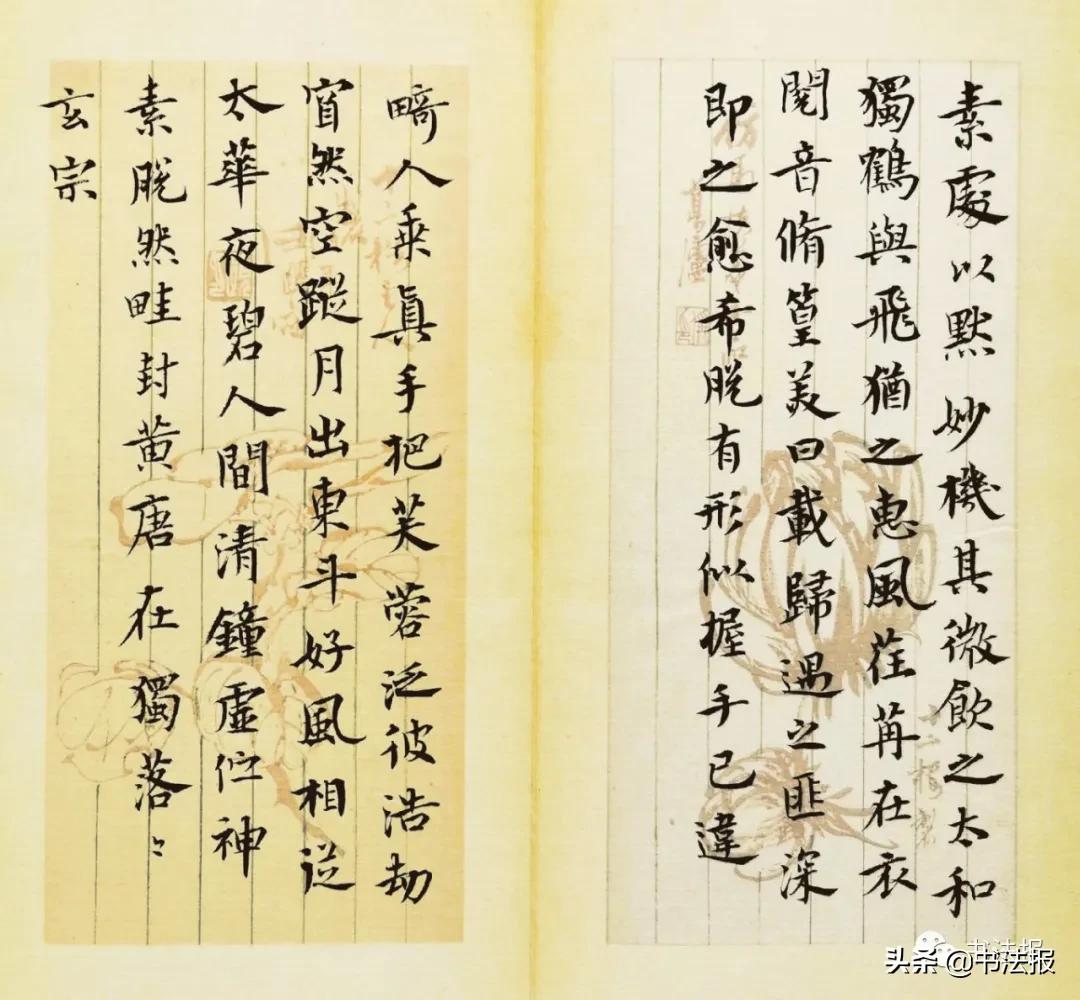 素處以黙妙機其微飲之太和
獨鶴與飛猶之惠風荏苒在衣
閱音脩篁美曰載歸遇之匪深
即之愈希脫有形似握手已違
畸人乘眞手把芙蓉泛彼浩劫
窅然空蹤月出東斗好風相從
太華夜碧人間清鐘虛佇神
素脫然畦封黃唐在獨落〻
玄宗
书法报
头条@书法报